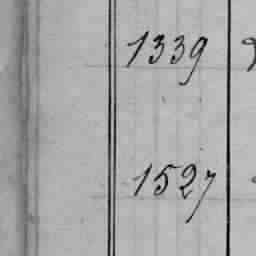 1339
1527